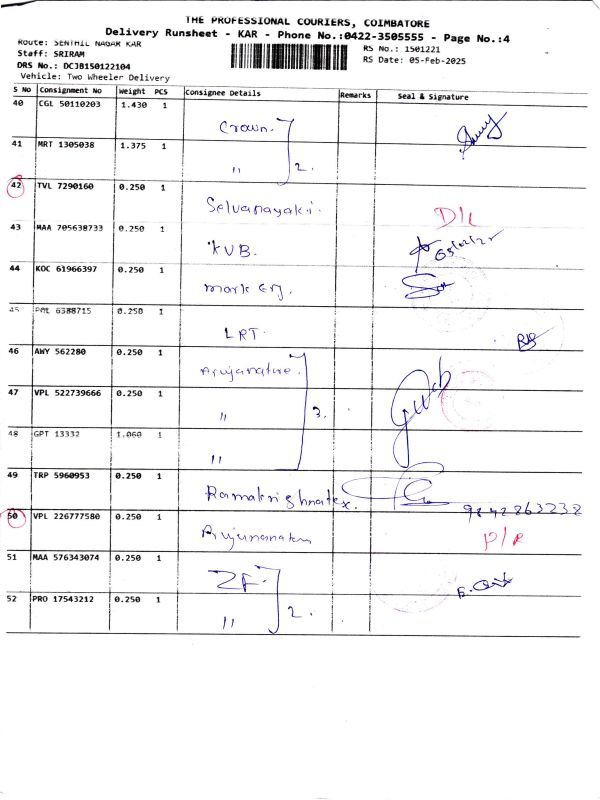 THE PROFESSIONAL COURIERS, COIMBATORE
Delivery Runsheet - KAR - Phone No.:0422-3505555 - Page No.:4
Route: SENTHIL NAGAR KAR
RS No.: 1501221
Staff: SRIRAM
RS Date: 05-Feb-2025
DRS No.: DCJB150122104
Vehicle: Two Wheeler Delivery
S No Consignment No Weight PCS Consignee Details Remarks Seal & Signature
40 CGL 50110203 1.430 1 Crown
41 MRT 1305038 1.375 1 " 2.
42 TVL 7290160 0.250 1 Selvanayaki. D/L
43 MAA 705638733 0.250 1 KVB. 05/02/25
44 KOC 61966397 0.250 1 mark Erj
45 POL 6388715 0.250 1 LRT.
46 AWY 562280 0.250 1
47 VPL 522739666 0.250 1 " 3.
48 GPT 13332 1.060 1 "
49 TRP 5960953 0.250 1 Ramakrishnatex. 9842863238
50 VPL 226777580 0.250 1
51 MAA 576343074 0.250 1 ZF.
52 PRO 17543212 0.250 1 " 2.